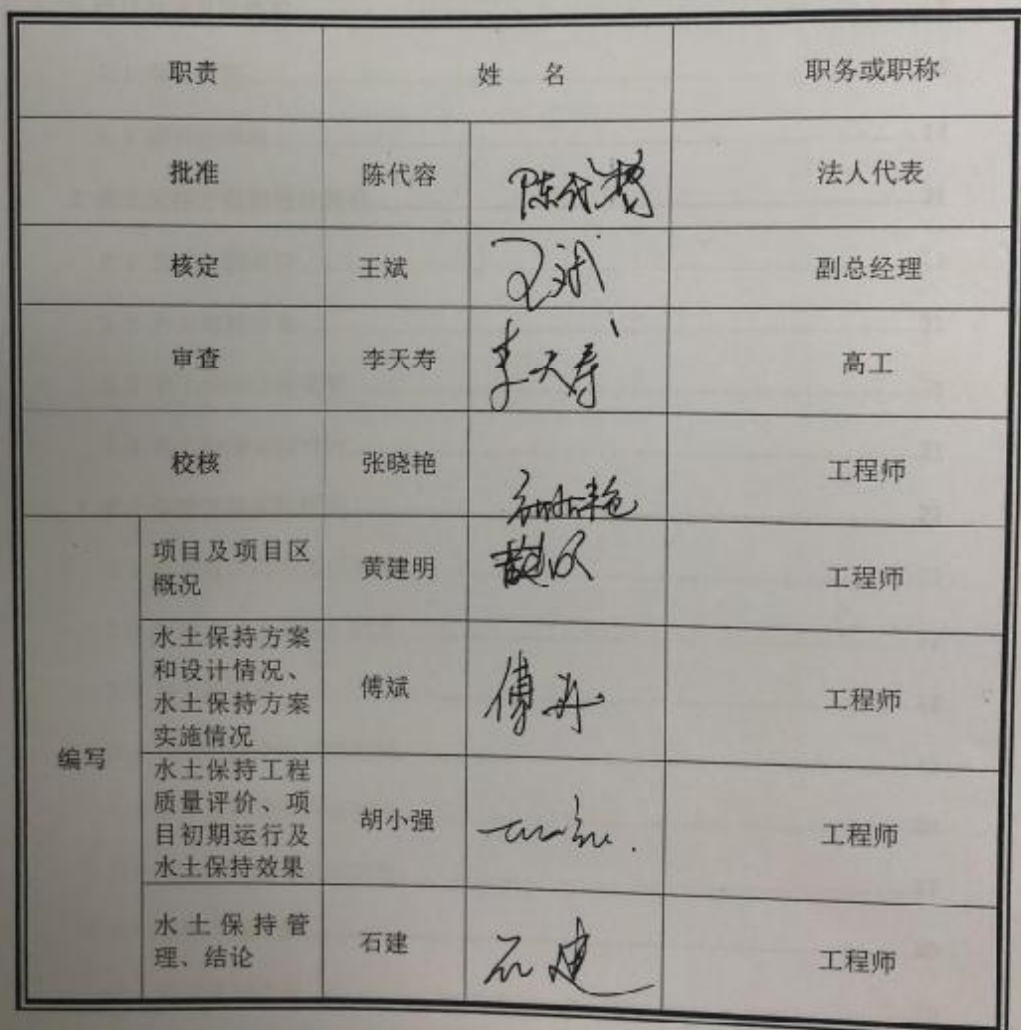 职责 姓 名 职务或职称
批准 陈代容 法人代表
核定 王斌 王斌 副总经理
审查 李天寿 李天寿 高工
校核 张晓艳 工程师
编写
项目及项目区
概况
黄建明 工程师
水土保持方案
和设计情况、
水土保持方案
实施情况
傅斌 工程师
水土保持工程
质量评价、项
目初期运行及
水土保持效果
胡小强 工程师
水土保持管
理、结论
石建 石建 工程师